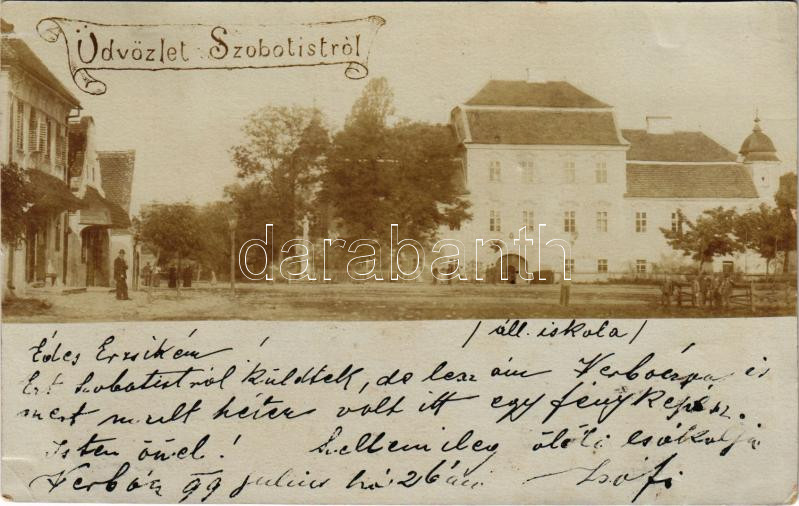 Üdvözlet Szobotistról
darabanth.com
/ áll. iskola /
Édes Erzsikém!
Ezt Szobotistról küldtek, de lesz ám Verbócz is
mert mult héten volt itt egy fényképész.
Isten önel! Szellemileg ölöli csókolja
Verbócz 99 július hó 26án Zsófi